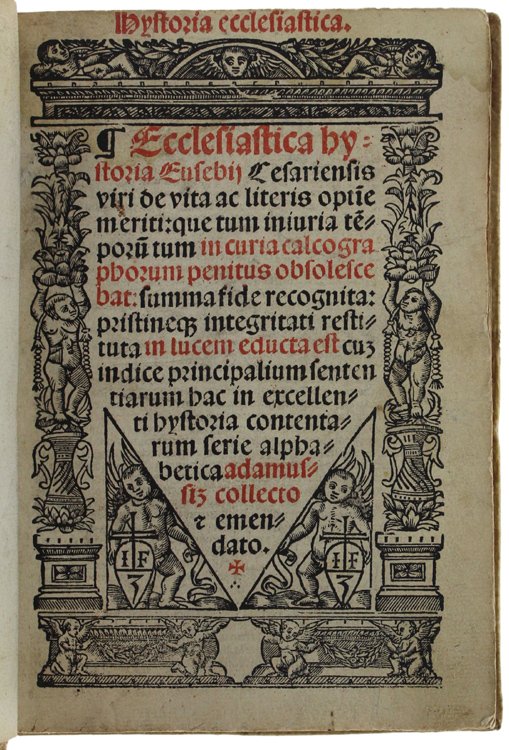 Hystoria ecclesiastica.
¶ Ecclesiastica hy-
storia Eusebij Cesariensis
viri de vita ac literis optīe
meriti:que tum iniuria tē-
porū tum in curia calcogra
phorum penitus obsolesce
bat: summa fide recognita:
pristineqꝫ integritati resti-
tuta in lucem educta est cuꝫ
indice principalium senten
tiarum hac in excellen-
ti hystoria contenta-
rum serie alpha-
betica adamus-
siꝫ collecto
⁊ emen-
dato.
I F
I F